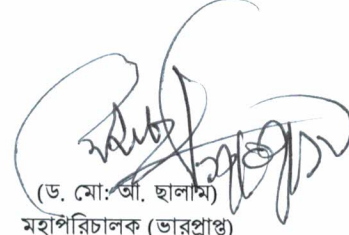 (ড. মো: আ. ছালাম)
মহাপরিচালক (ভারপ্রাপ্ত)